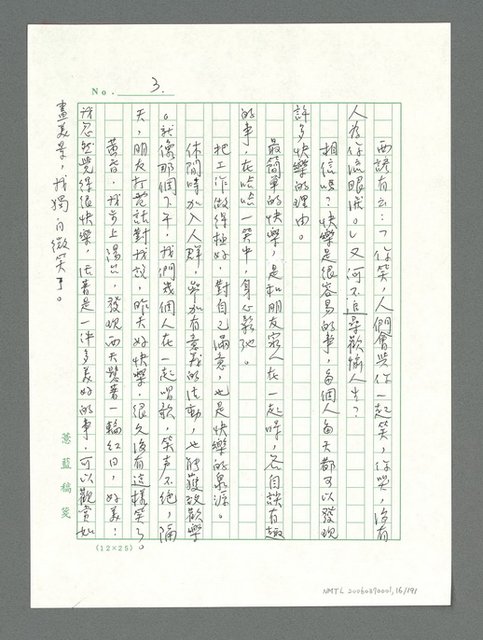 No. 3.
西諺有云:「你笑,人們會與你一起笑,你哭,沒有
人為你流眼淚。」又何不追尋歡愉人生?
相信嗎?快樂是很容易的事,每個人每天都可以發現
許多快樂的理由。
最簡單的快樂,是和朋友家人在一起時,各自談有趣
的事,在哈哈一笑中,身心鬆弛。
把工作做得極好,對自己滿意,也是快樂的泉源。
休閒時加入人群,參加有意義的活動,也能獲致歡樂
。就像那個下午,我們幾個人在一起唱歌,笑声不絕,隔
天,朋友打電話對我說,昨天好快樂,很久沒有這樣笑了。
黃昏,我步上陽台,發現西天懸著一輪紅日,好美!
我忽然覺得很快樂,活著是一件多美好的事,可以觀賞如
畫美景,我獨自微笑了。
薏藍稿箋
(12×25)
NMTL 20060390001,16/191